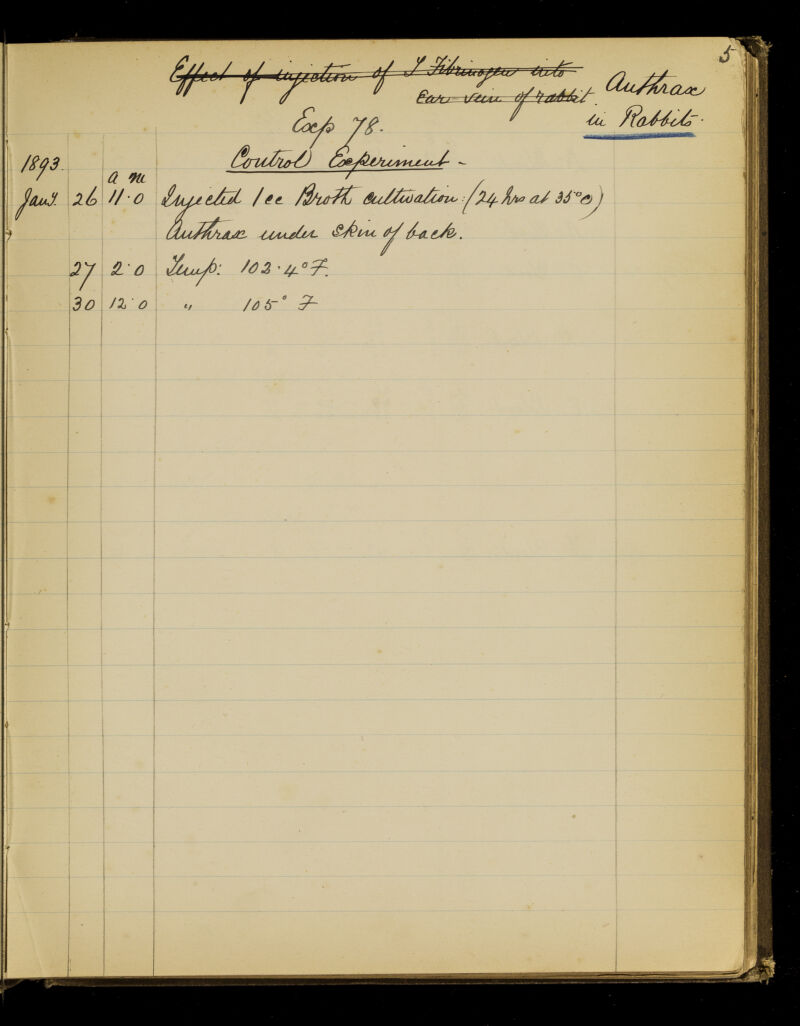 5
Effect of injection of T Fibrinogen into
ear vein of rabbit.
Anthrax
in Rabbits.
Exp 78.
Control Experiment -
1893.
a m
Jany. 26 11.0 Injected 1 cc Broth cultivation: (24 hrs at 35°C)
Anthrax under skin of back.
27 2.0 Temp: 102.4° F.
30 12.0 " 105° F